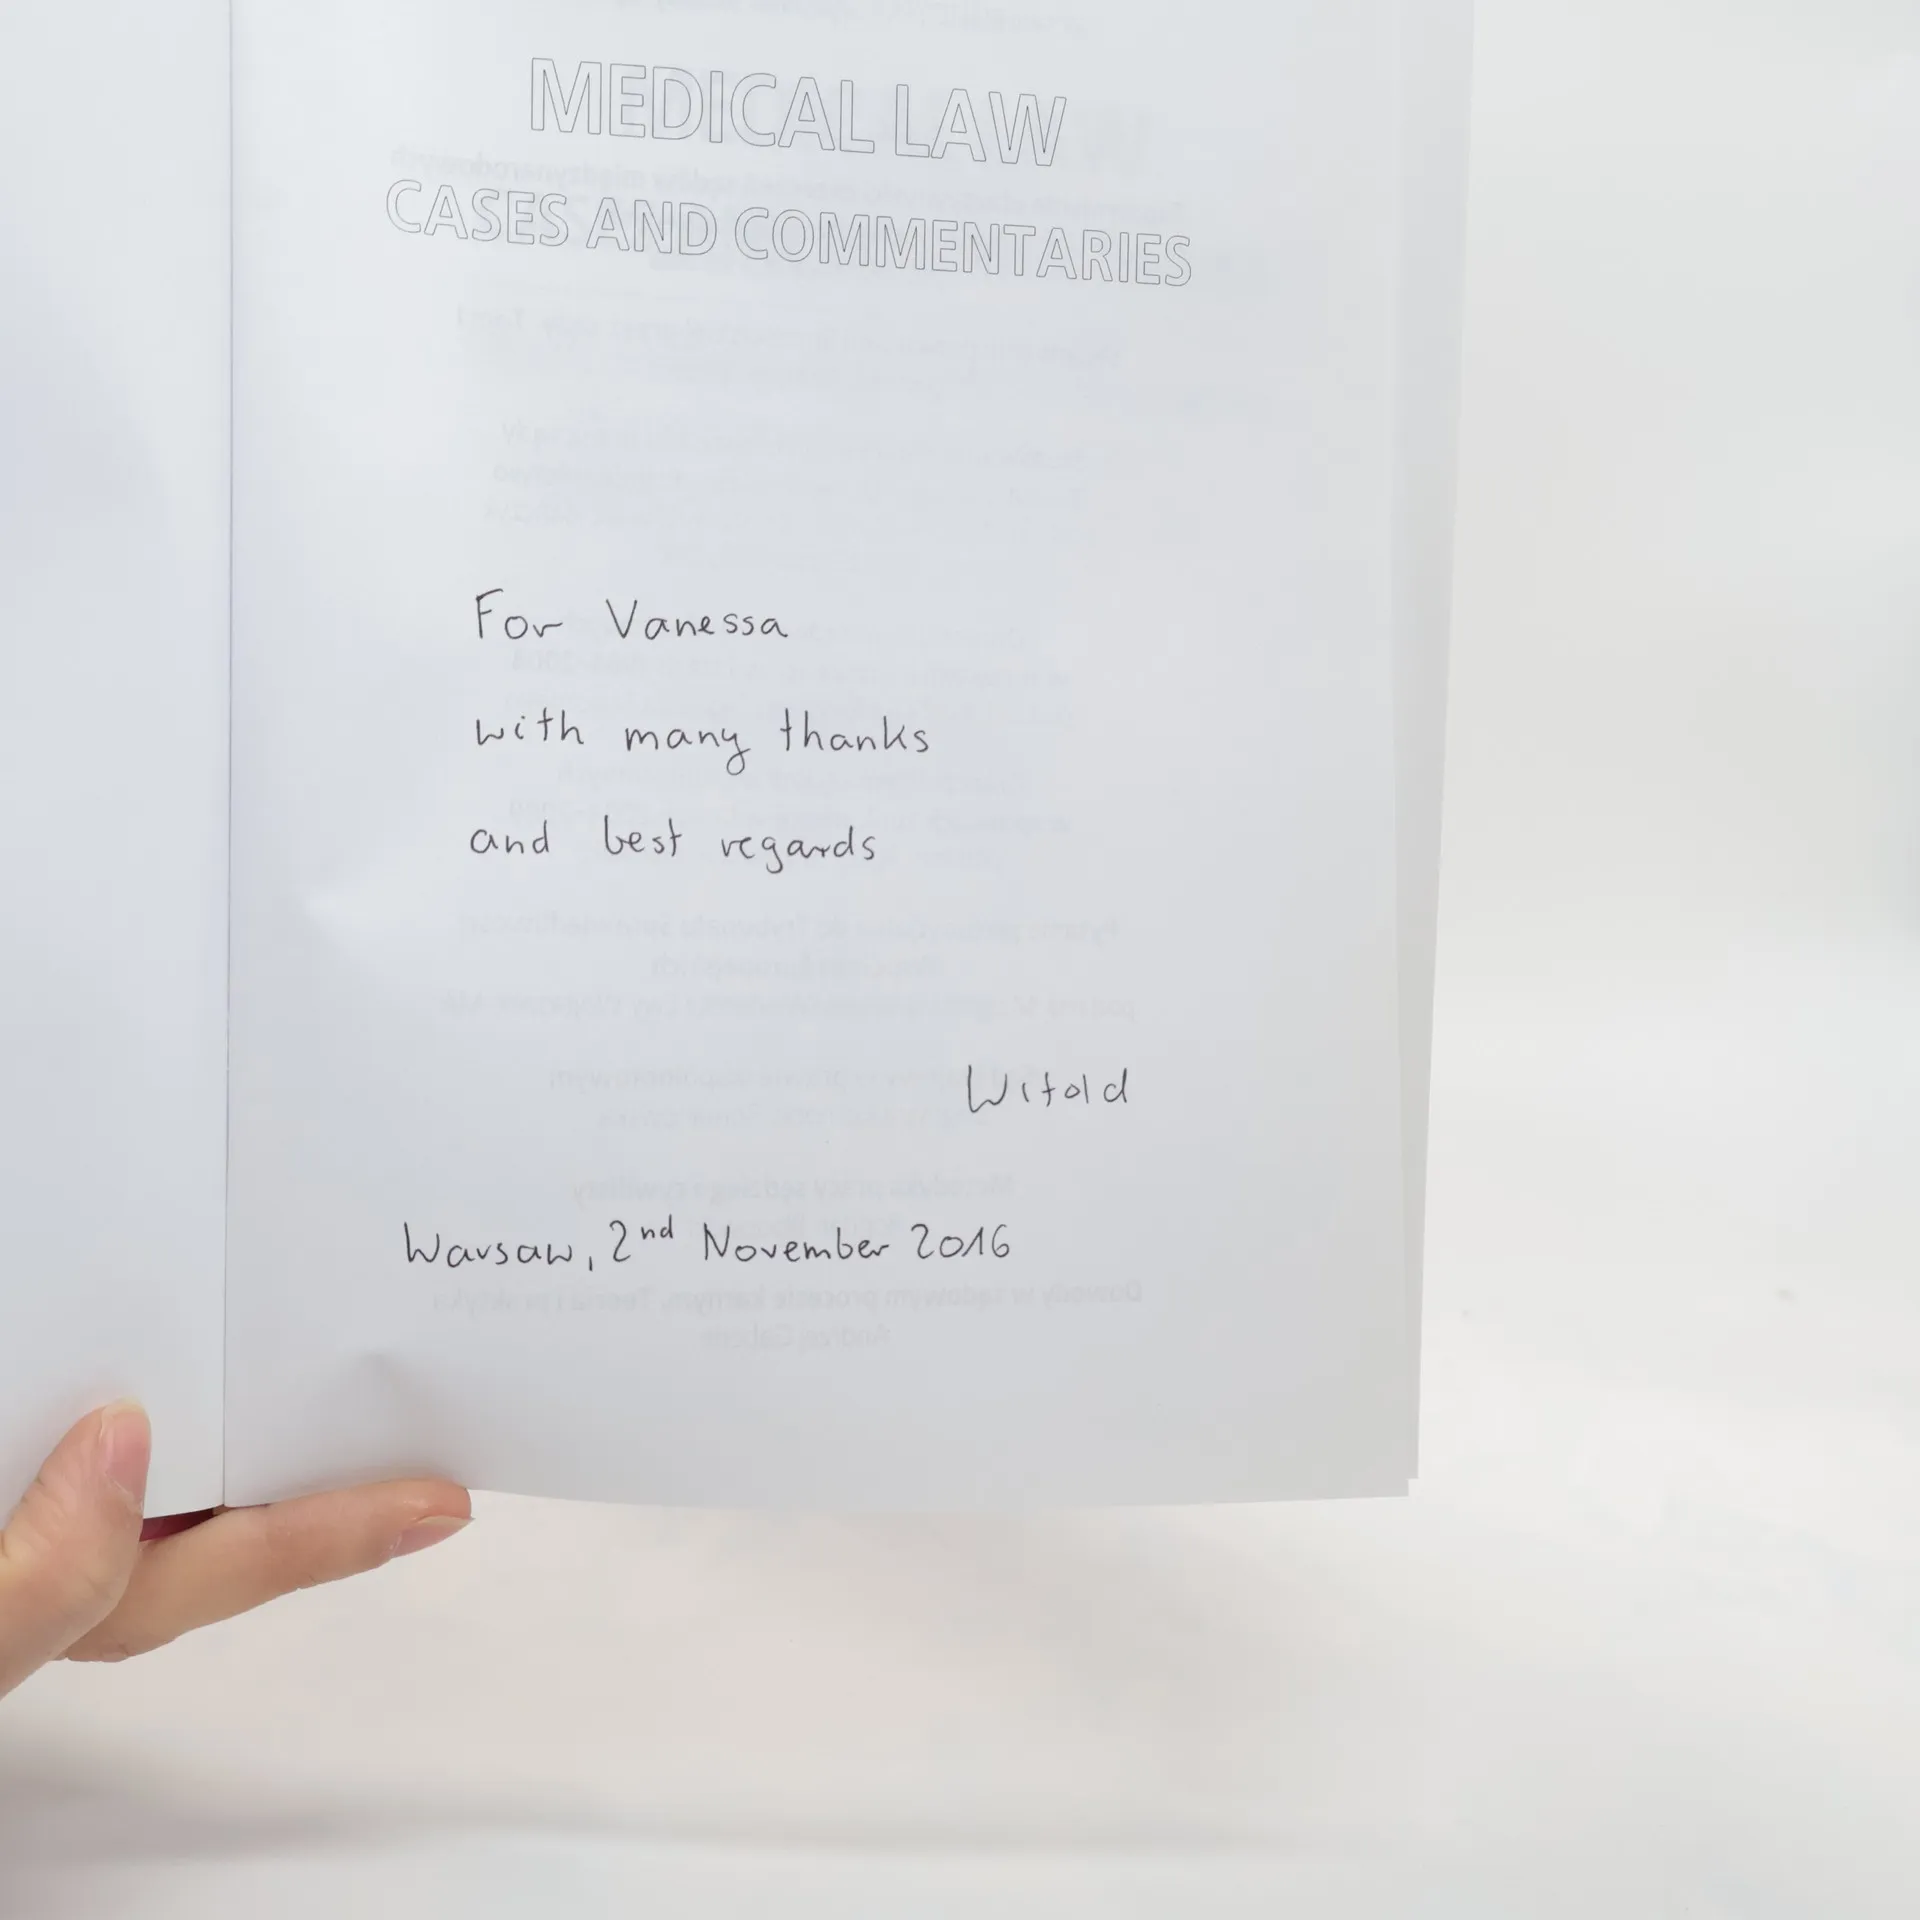 MEDICAL LAW
CASES AND COMMENTARIES
For Vanessa
with many thanks
and best regards
Witold
Warsaw, 2nd November 2016